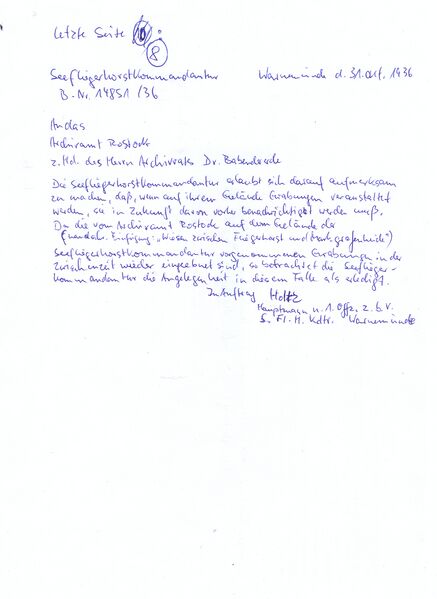 letzte Seite
8
Seefliegerhorstkommandantur Warnemünde d. 31. Okt. 1936
B. Nr. 14851 /36
An das
Archivamt Rostock
z. Hd. des Herrn Archivrats Dr. Babendererde
Die Seefliegerhorstkommandantur erlaubt sich darauf aufmerksam
zu machen, daß, wenn auf ihrem Gelände Grabungen veranstaltet
werden, sie in Zukunft davon vorher benachrichtigt werden muß.
Da die vom Archivamt Rostock auf dem Gelände der
(handsch. Einfügung: „Wiesen zwischen Fliegerhorst und Markgrafenheide")
Seefliegerhorstkommandantur vorgenommenen Grabungen in der
Zwischenzeit wieder eingeebnet sind, so betrachtet die Seeflieger-
kommandantur die Angelegenheit in diesem Falle als erledigt.
Im Auftrag Holtz
Hauptmann u. 1. Offz. z. b. V.
S. Fl. H. Kdtr. Warnemünde